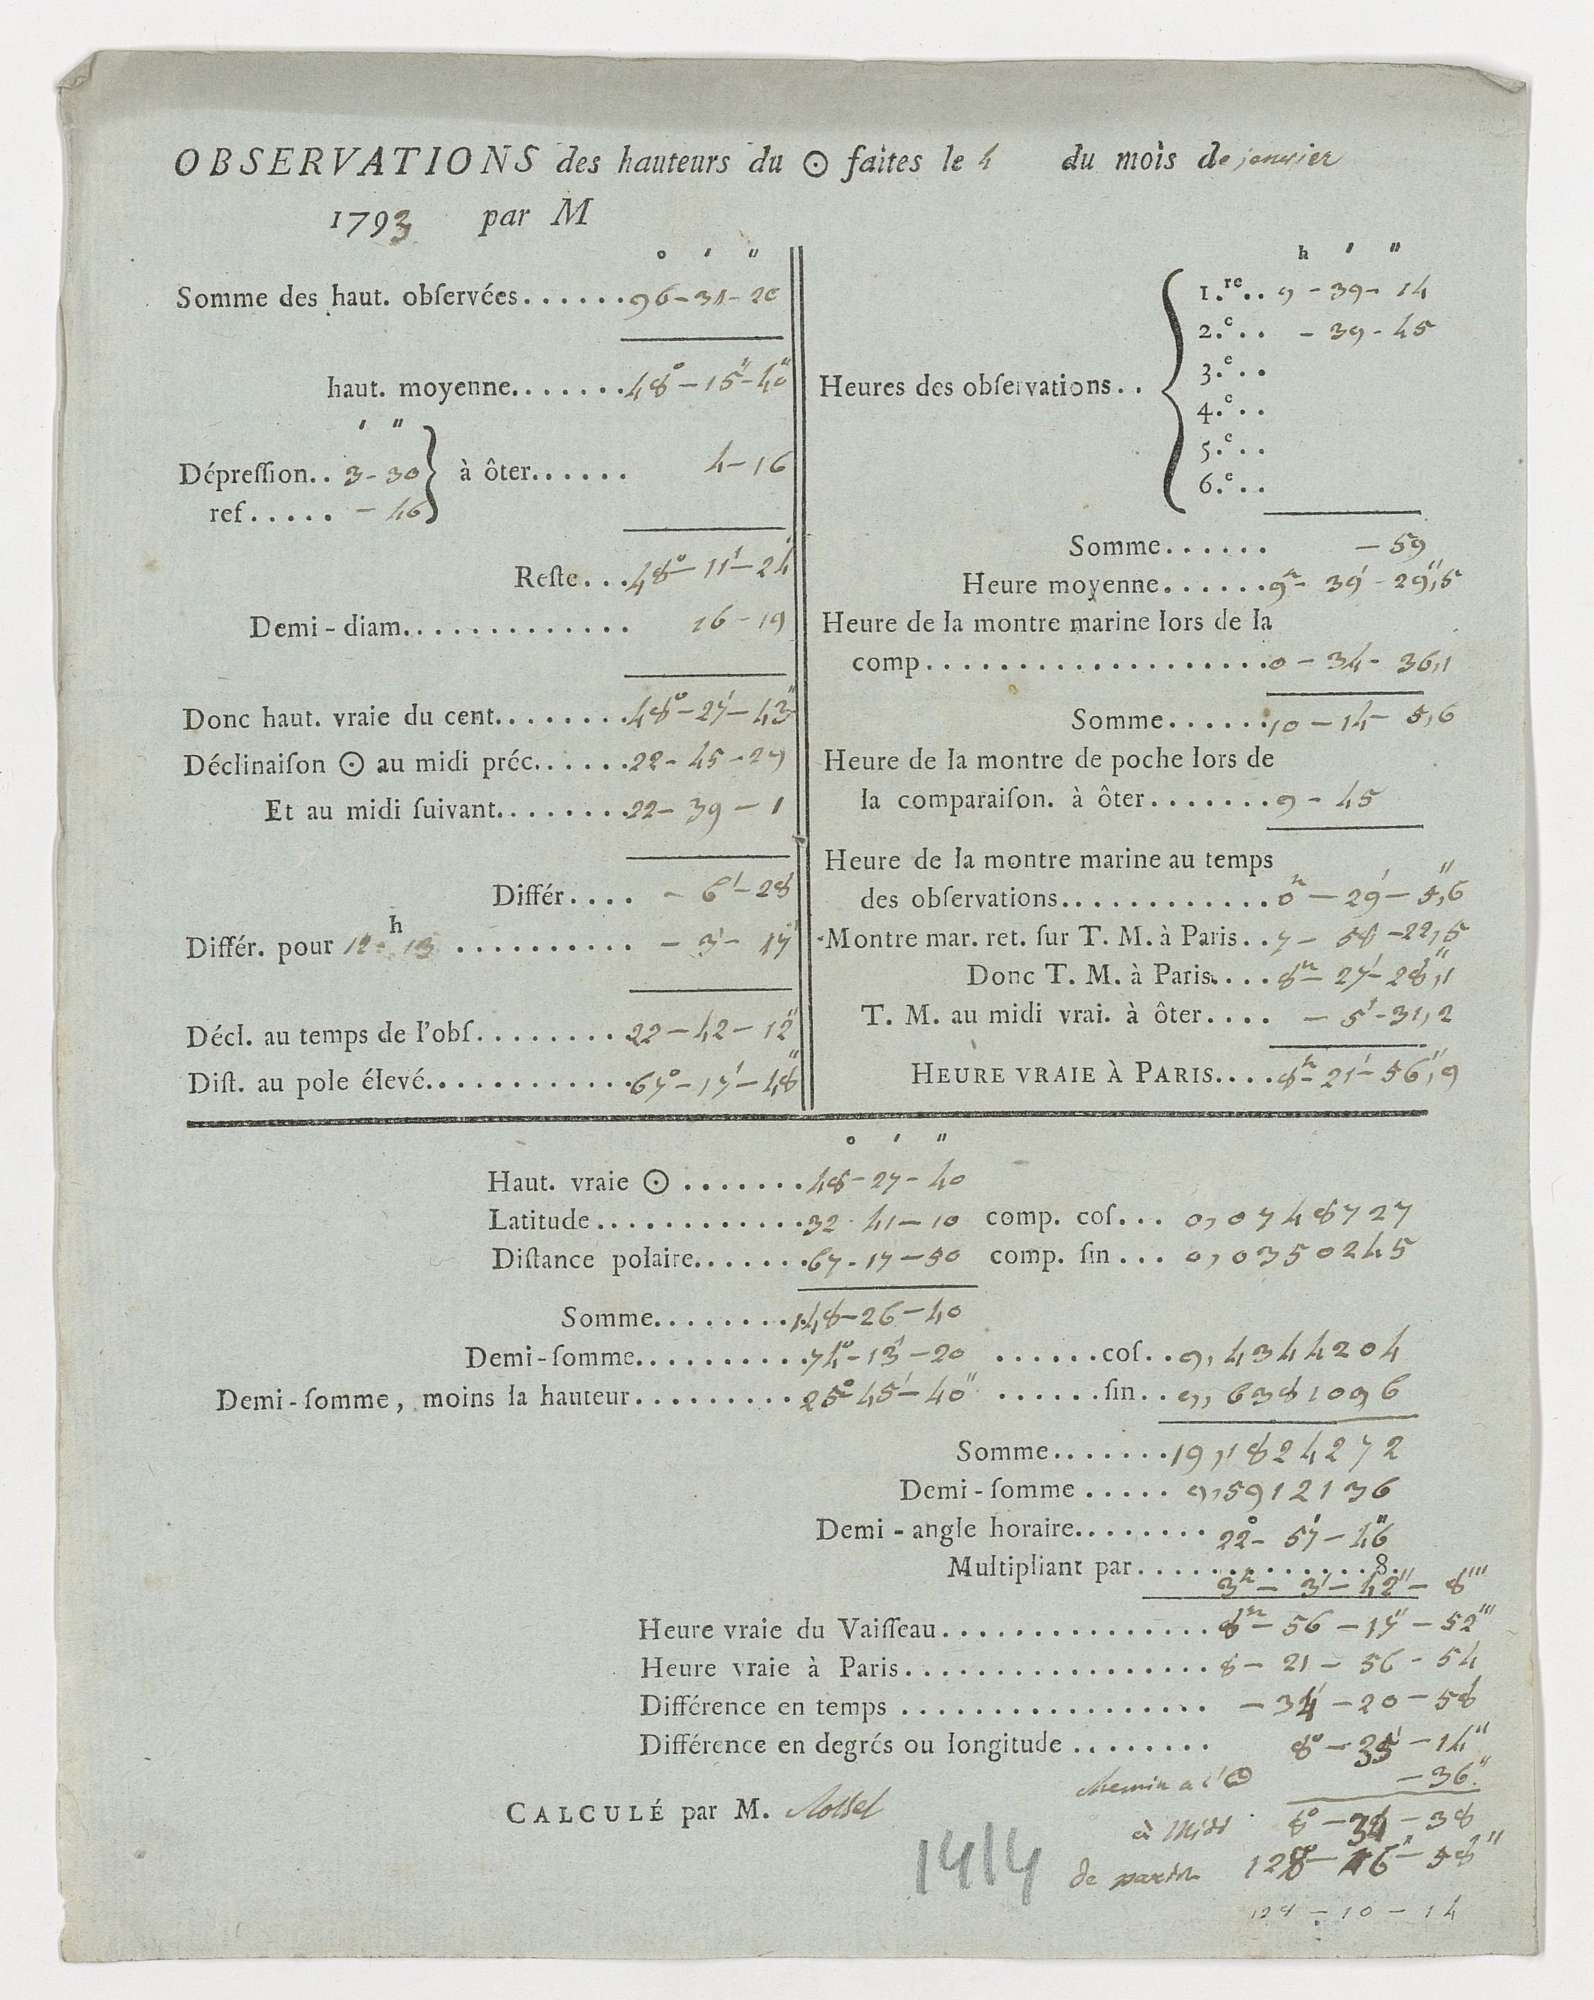 OBSERVATIONS des hauteurs du ☉ faites le 4 du mois de janvier
1793 par M
° ′ ″
Somme des haut. obſervées...... 96 - 31 - 20
haut. moyenne....... 48° - 15″ - 40″
′ ″
Dépreſſion.. 3 - 30 } à ôter...... 4 - 16
ref..... - 46
Reſte... 48° - 11′ - 24
Demi-diam............. 16 - 19
Donc haut. vraie du cent........ 48° - 27′ - 43″
Déclinaiſon ☉ au midi préc...... 22 - 45 - 29
Et au midi ſuivant........ 22 - 39 - 1
Différ.... - 6′ - 28
h
Différ. pour 12 - 13 .......... - 3′ - 17
Décl. au temps de l'obſ......... 22 - 42 - 12″
Diſt. au pole élevé............. 67° - 17′ - 48″
h ′ ″
Heures des obſervations.. {
1.re.. 9 - 39 - 14
2.e.. - 39 - 45
3.e..
4.e..
5.e..
6.e..
Somme...... - 59
Heure moyenne...... 9h - 39′ - 29″,5
Heure de la montre marine lors de la
comp................... 0 - 34 - 36,1
Somme...... 10 - 14 - 5,6
Heure de la montre de poche lors de
la comparaiſon. à ôter....... 9 - 45
Heure de la montre marine au temps
des obſervations............. 0h - 29′ - 5″,6
Montre mar. ret. ſur T. M. à Paris.. 7 - 58 - 22,5
Donc T. M. à Paris.... 8h - 27′ - 28″,1
T. M. au midi vrai. à ôter.... - 5′ - 31,2
HEURE VRAIE À PARIS.... 8h - 21′ - 56″,9
° ′ ″
Haut. vraie ☉ ....... 48 - 27 - 40
Latitude............ 32 - 41 - 10 comp. coſ... 0,0748727
Diſtance polaire....... 67 - 17 - 50 comp. ſin... 0,0350245
Somme........ 148 - 26 - 40
Demi-ſomme.......... 74° - 13′ - 20 ......coſ.. 9,4344204
Demi-ſomme, moins la hauteur......... 25° 45′ - 40″ ......ſin.. 9,6381096
Somme....... 19,1824272
Demi-ſomme ..... 9,5912136
Demi-angle horaire........ 22° - 57′ - 46″
Multipliant par..............8.
3h - 3′ - 42″ - 8‴
Heure vraie du Vaiſſeau................ 8h - 56 - 17″ - 52‴
Heure vraie à Paris................... 8 - 21 - 56 - 54
Différence en temps ................. - 34′ - 20 - 58
Différence en degrés ou longitude ........ 8° - 35′ - 14″
chemin a l' - 36″
CALCULÉ par M. Rossel
à Midi 8° - 34 - 38
de 128° - 16′ - 58″
1414
128 - 10 - 14